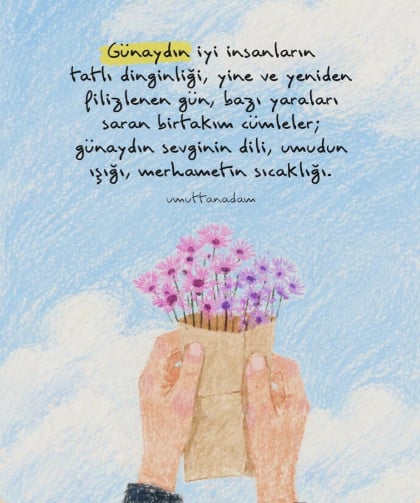 Günaydın iyi insanların
tatlı dinginliği, yine ve yeniden
filizlenen gün, bazı yaraları
saran birtakım cümleler;
günaydın sevginin dili, umudun
ışığı, merhametin sıcaklığı.
umuttanadam